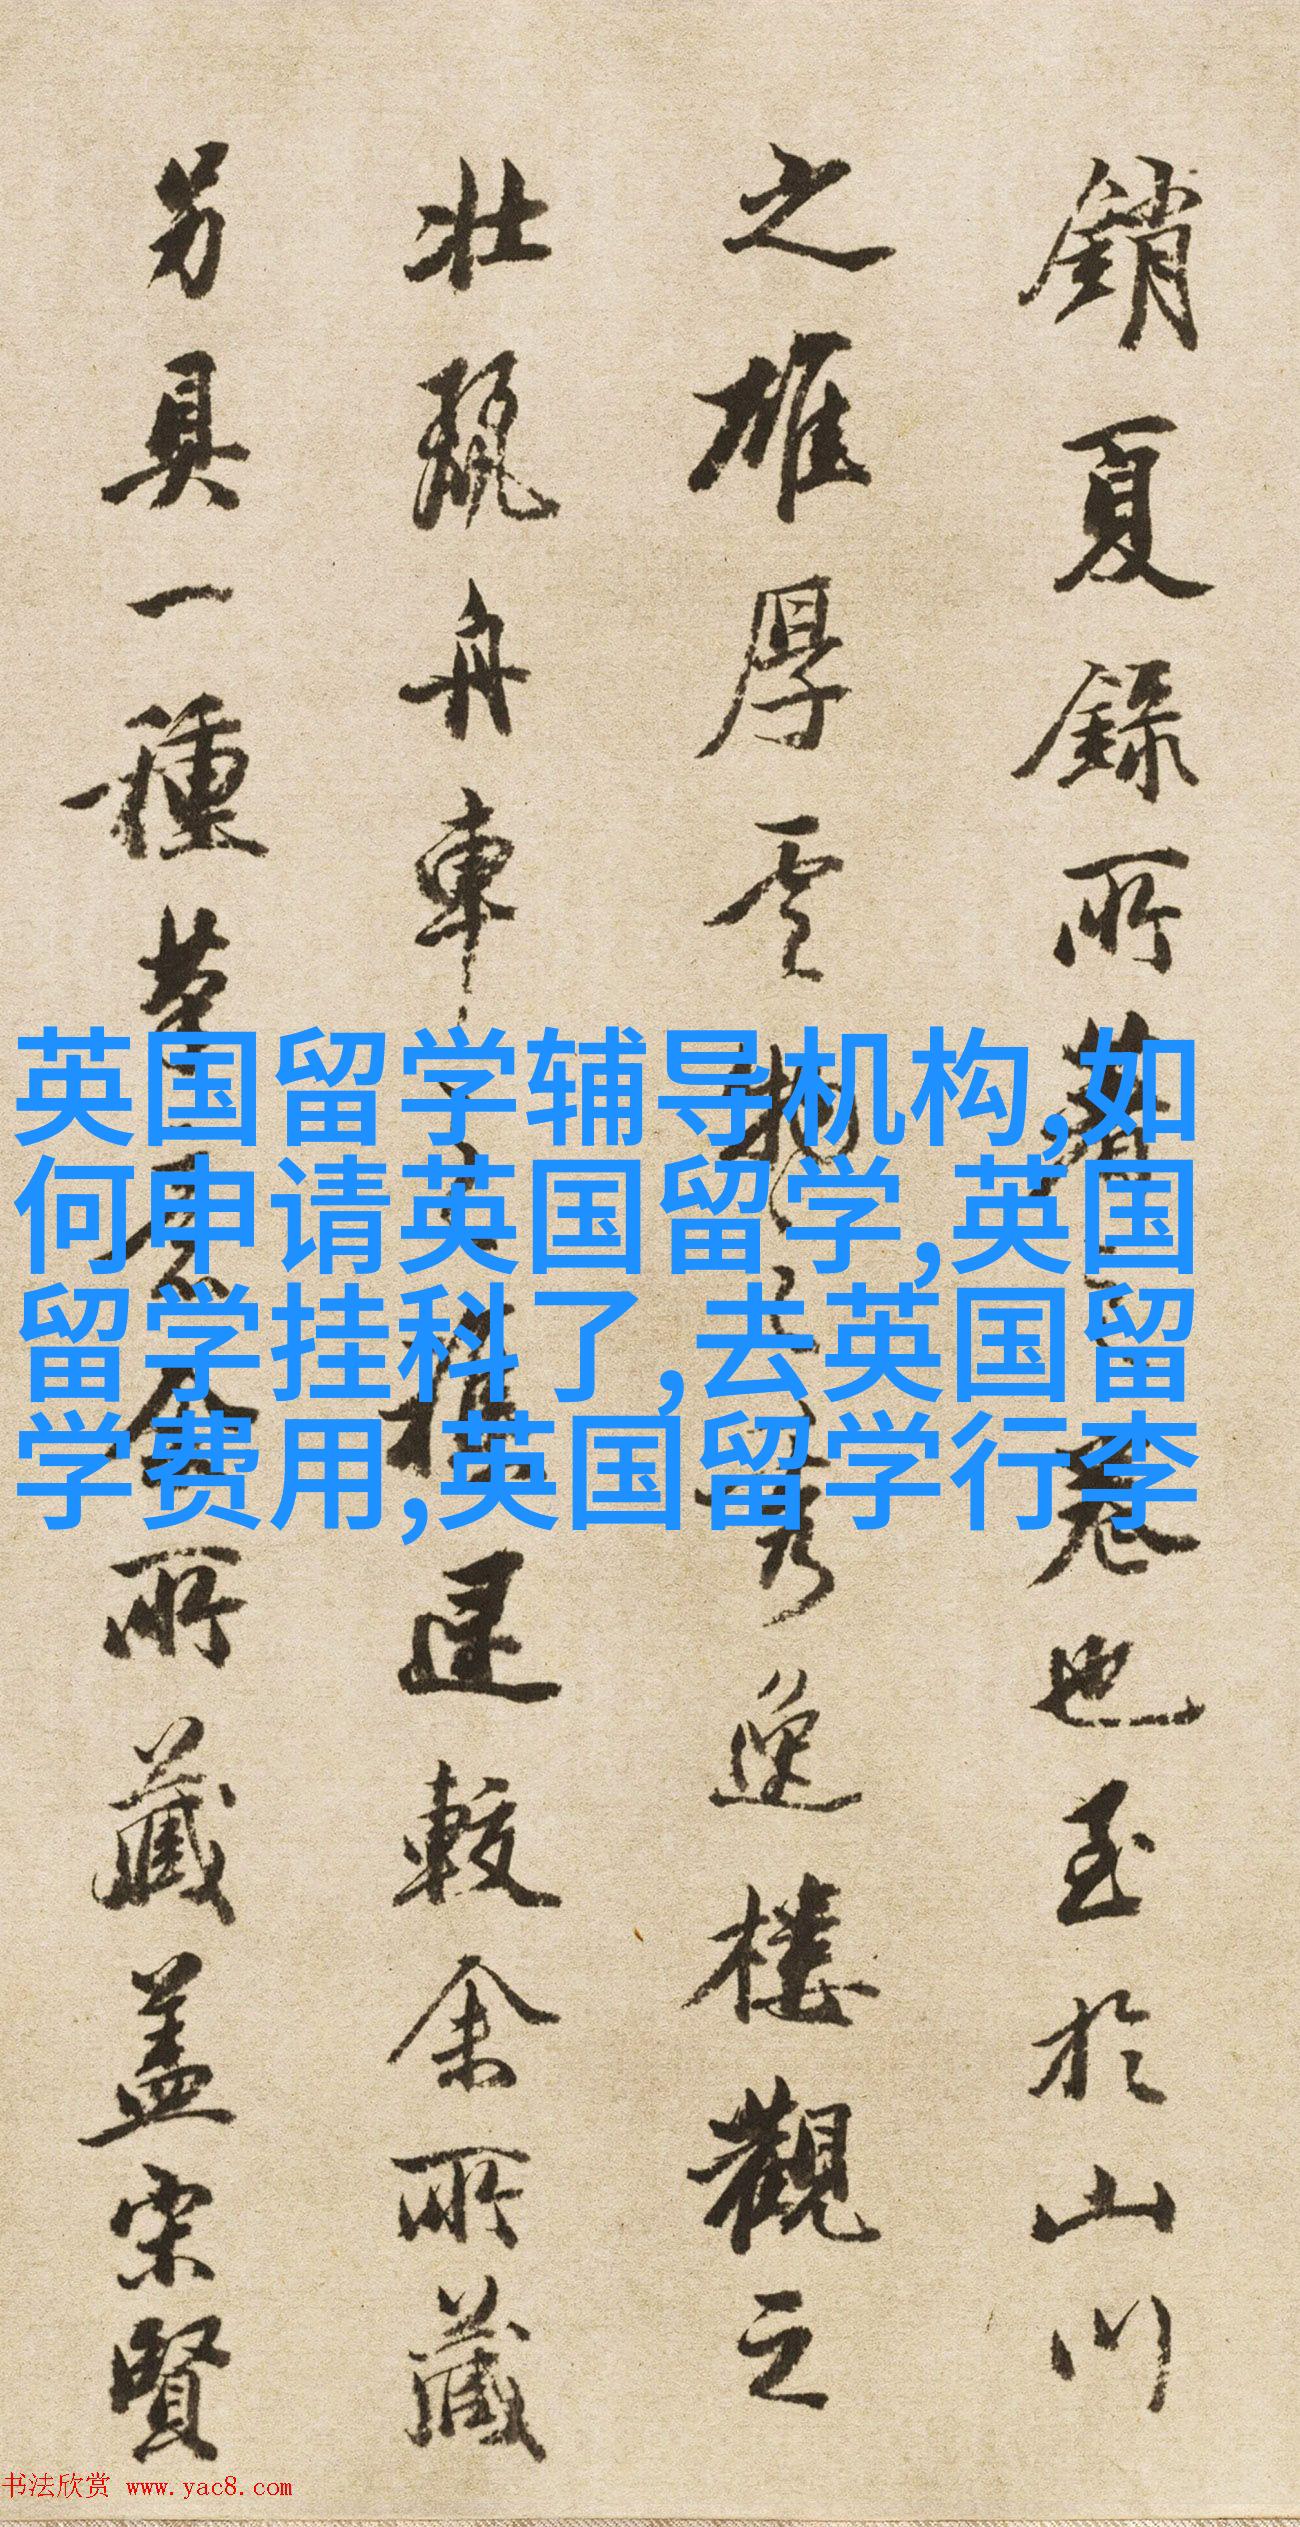 銷夏錄所著之卷也至於山川
之雄厚雲物之秀逸樓觀之
壯麗舟車
遅較余所藏
另具一種
所藏蓋宋賢
英国留学辅导机构,如
何申请英国留学,英国
留学挂科了,去英国留
学费用,英国留学行李
书法欣赏 www.yac8.com